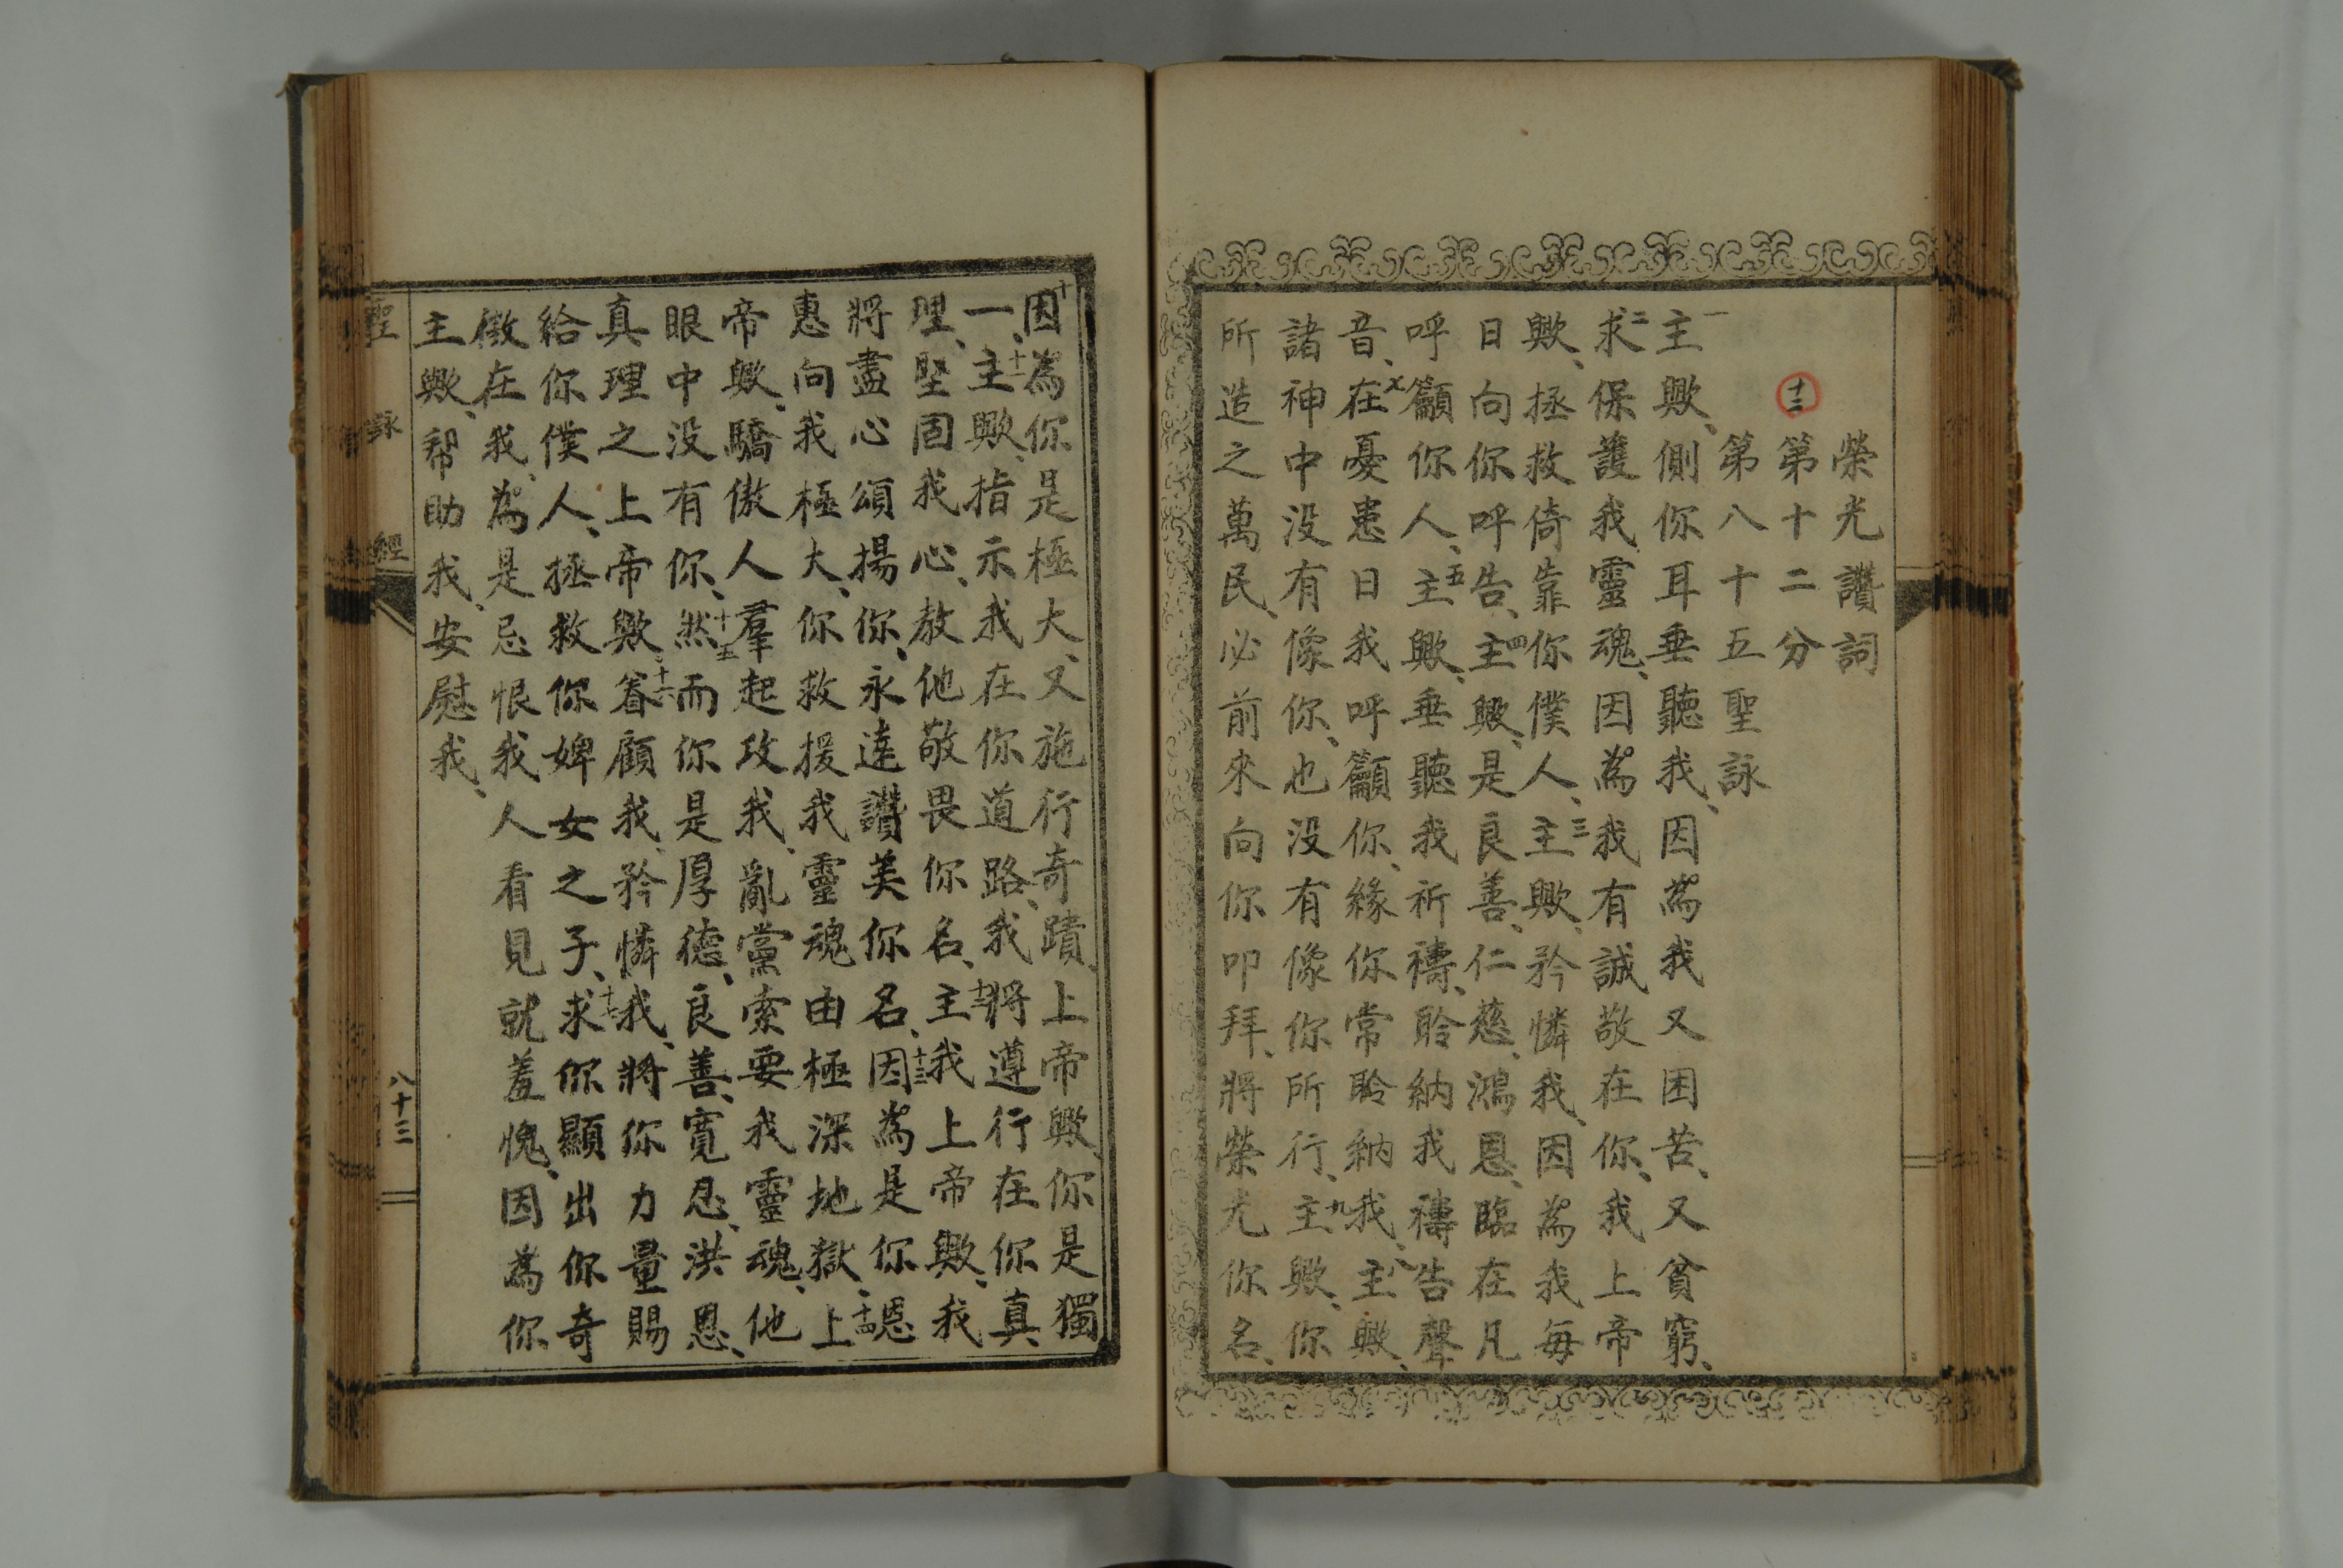 榮光讚詞
十二
第十二分
第八十五聖詠
一主歟、側你耳垂聽我、因為我又困苦、又貧窮、
二求保護我靈魂、因為我有誠敬在你、我上帝
歟、拯救倚靠你僕人、三主歟、矜憐我、因為我每
日向你呼告、四主歟、是良善、仁慈、鴻恩、臨在凡
呼籲你人、五主歟、垂聽我祈禱、聆納我禱告聲
音、七在憂患日我呼籲你、緣你常聆納我、八主歟、
諸神中没有像你、也没有像你所行、九主歟、你
所造之萬民、必前來向你叩拜、將榮光你名、
十因為你是極大、又施行奇蹟、上帝歟、你是獨
一、十一主歟、指示我在你道路、我將遵行在你真
理、堅固我心、教他敬畏你名、十二主我上帝歟、我
將盡心頌揚你、永遠讚美你名、十三因為是你恩
惠向我極大、你救援我靈魂由極深地獄、十四上
帝歟、驕傲人羣起攻我、亂黨索要我靈魂、他
眼中没有你、十五然而你是厚德、良善、寬忍、洪恩、
真理之上帝歟、十六眷顧我、矜憐我、將你力量賜
給你僕人、拯救你婢女之子、十七求你顯出你奇
徵在我、為是忌恨我人看見就羞愧、因為你
主歟、帮助我、安慰我、
聖詠經
八十三